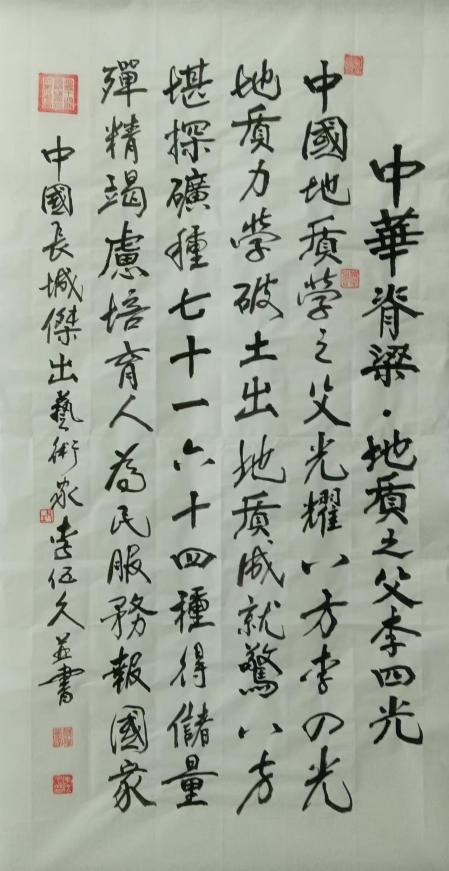 中華脊梁·地質之父李四光
中國地質學之父光耀八方李四光
地質力學破土出地質成就驚八方
堪探礦種七十一六十四種得儲量
殫精竭慮培育人為民服務報國家
中國長城傑出藝術家李伍久並書